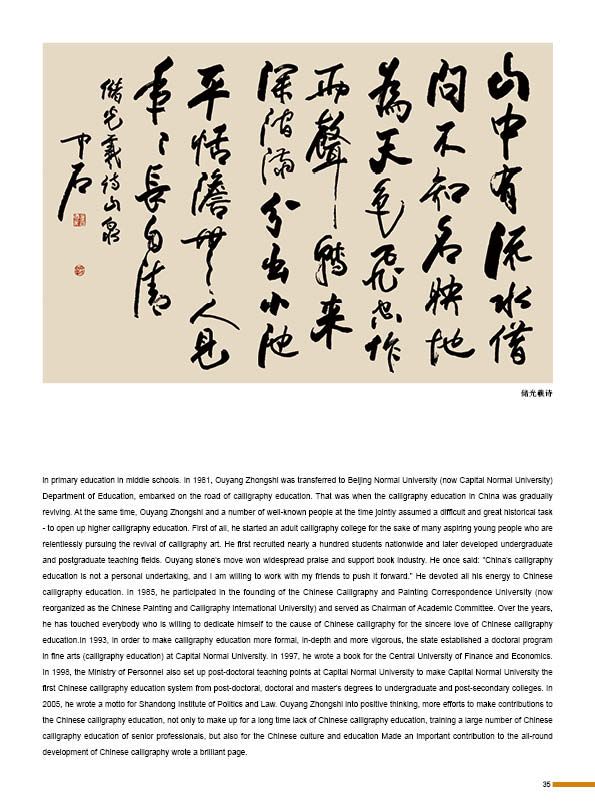 山中有流水借
問不知名映地
為天色飛空作
雨聲轉来
深澗滿分出小池
平恬澹無人見
年〻長自清
儲光羲詩山泉
中石
储光羲诗
in primary education in middle schools. In 1981, Ouyang Zhongshi was transferred to Beijing Normal University (now Capital Normal University)
Department of Education, embarked on the road of calligraphy education. That was when the calligraphy education in China was gradually
reviving. At the same time, Ouyang Zhongshi and a number of well-known people at the time jointly assumed a difficult and great historical task
- to open up higher calligraphy education. First of all, he started an adult calligraphy college for the sake of many aspiring young people who are
relentlessly pursuing the revival of calligraphy art. He first recruited nearly a hundred students nationwide and later developed undergraduate
and postgraduate teaching fields. Ouyang stone's move won widespread praise and support book industry. He once said: "China's calligraphy
education is not a personal undertaking, and I am willing to work with my friends to push it forward." He devoted all his energy to Chinese
calligraphy education. In 1985, he participated in the founding of the Chinese Calligraphy and Painting Correspondence University (now
reorganized as the Chinese Painting and Calligraphy International University) and served as Chairman of Academic Committee. Over the years,
he has touched everybody who is willing to dedicate himself to the cause of Chinese calligraphy for the sincere love of Chinese calligraphy
education.In 1993, in order to make calligraphy education more formal, in-depth and more vigorous, the state established a doctoral program
in fine arts (calligraphy education) at Capital Normal University. In 1997, he wrote a book for the Central University of Finance and Economics.
In 1998, the Ministry of Personnel also set up post-doctoral teaching points at Capital Normal University to make Capital Normal University the
first Chinese calligraphy education system from post-doctoral, doctoral and master's degrees to undergraduate and post-secondary colleges. In
2005, he wrote a motto for Shandong Institute of Politics and Law. Ouyang Zhongshi into positive thinking, more efforts to make contributions to
the Chinese calligraphy education, not only to make up for a long time lack of Chinese calligraphy education, training a large number of Chinese
calligraphy education of senior professionals, but also for the Chinese culture and education Made an important contribution to the all-round
development of Chinese calligraphy wrote a brilliant page.
35